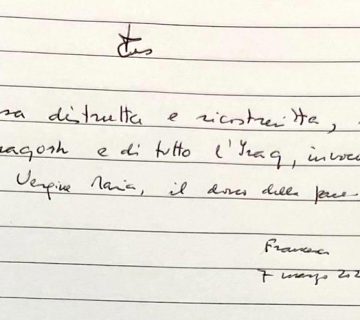 sa distrutta e ricostruita,
ragosh e di tutto l'Iraq, invoc
Vergine Maria, il dono della pace
Francesco
7 marzo 202